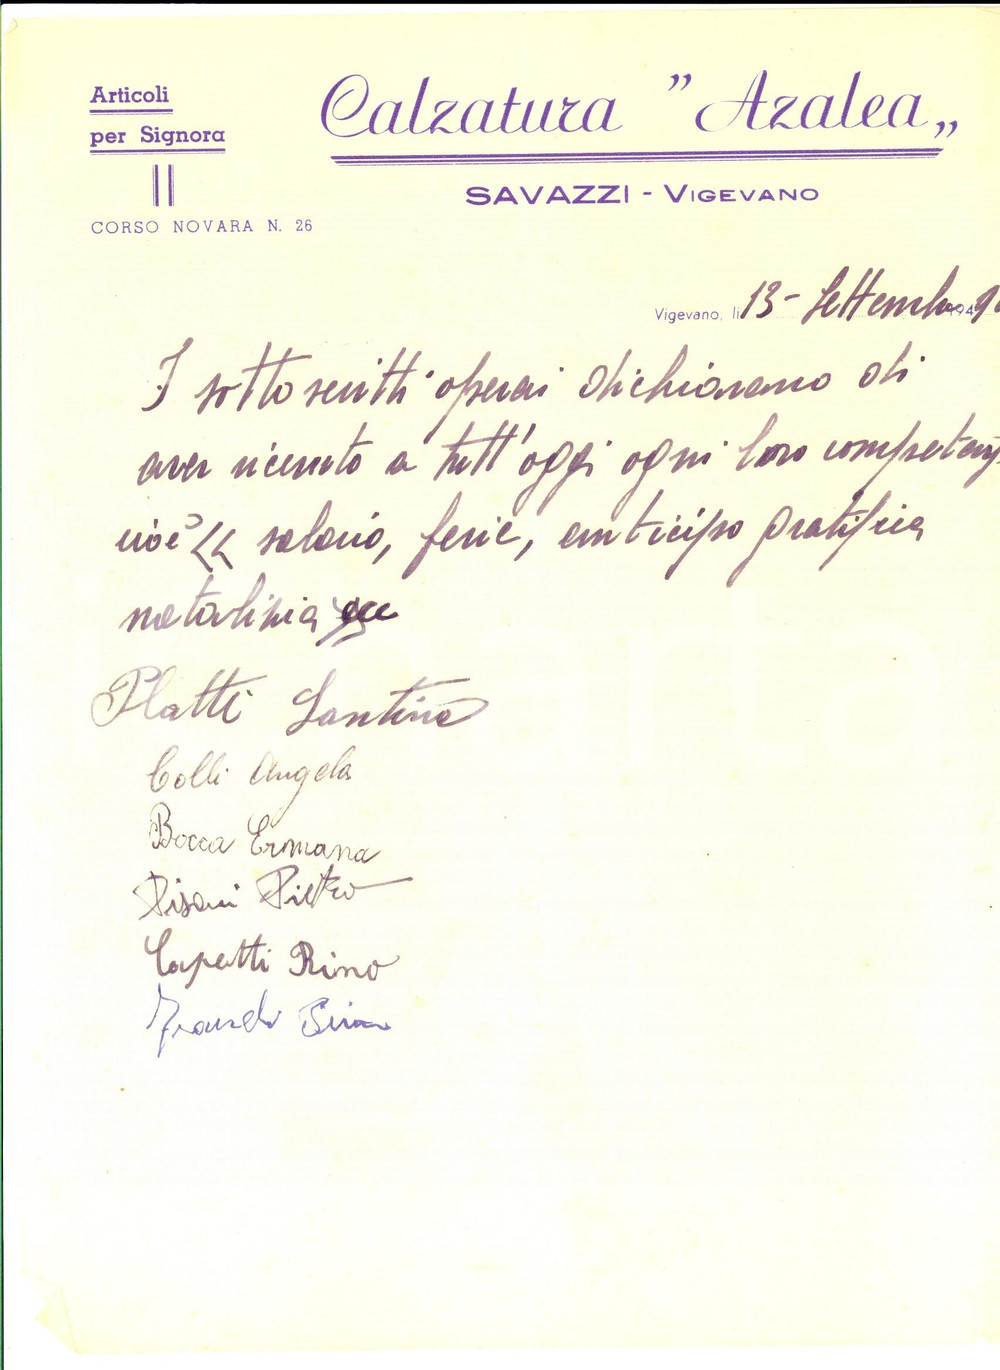 Articoli
per Signora
CORSO NOVARA N. 26
Calzatura "Azalea"
SAVAZZI - VIGEVANO
Vigevano, lì 13 - Settemb 194
I sottoscritti operai dichiarano di
aver ricevuto a tutt'oggi ogni loro competenz
cioè salario, ferie, anticipo gratifica
natalizia ecc
Platti Santina
Colli Angela
Bocca Ermana
Pisani Pietro
Capetti Rino